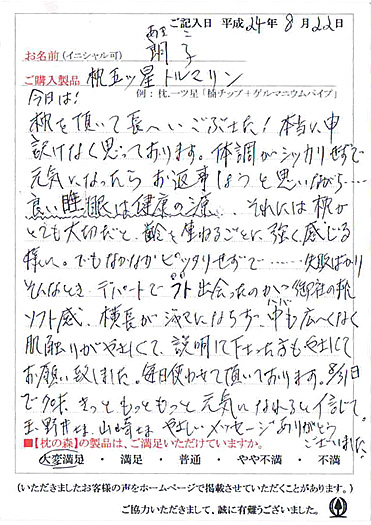 ご記入日 平成24年8月22日
お名前(イニシャル可) 朗子
ご購入製品 枕五ッ星トルマリン
例:枕.一ツ星「楠チップ+ゲルマニウムパイプ」
今日は!
枕を頂いて長へいごぶさた!本当に申
訳けなく思っております。体調がシッカリせずで
元気になったらお返事しようと思いながら……
良い睡眠は健康の源、それには枕が
とても大切だと、齢を重ねるごとに強く感じる
様に。でもなかなかピッタリせずで……失敗ばかり
そんなとき、デパートでフト出会ったのがコ御社の枕
ソフト感、横長がジャマにならず、巾も広くなく
肌触りがやさしくて、説明して下さった方もやさしくて
お願い致しました。毎日使わせて頂いております。8/31日
で 才、きっともっともっと元気になれると信じて。
玉野井さま、山崎さま やさしいメッセージありがとう
ございました。
■【枕の森】の製品は、ご満足いただけていますか。
大変満足 ・ 満足 ・ 普通 ・ やや不満 ・ 不満
(いただきましたお客様の声をホームページで掲載させていただくことがあります。)
ご協力いただきまして、誠に有難うございました。